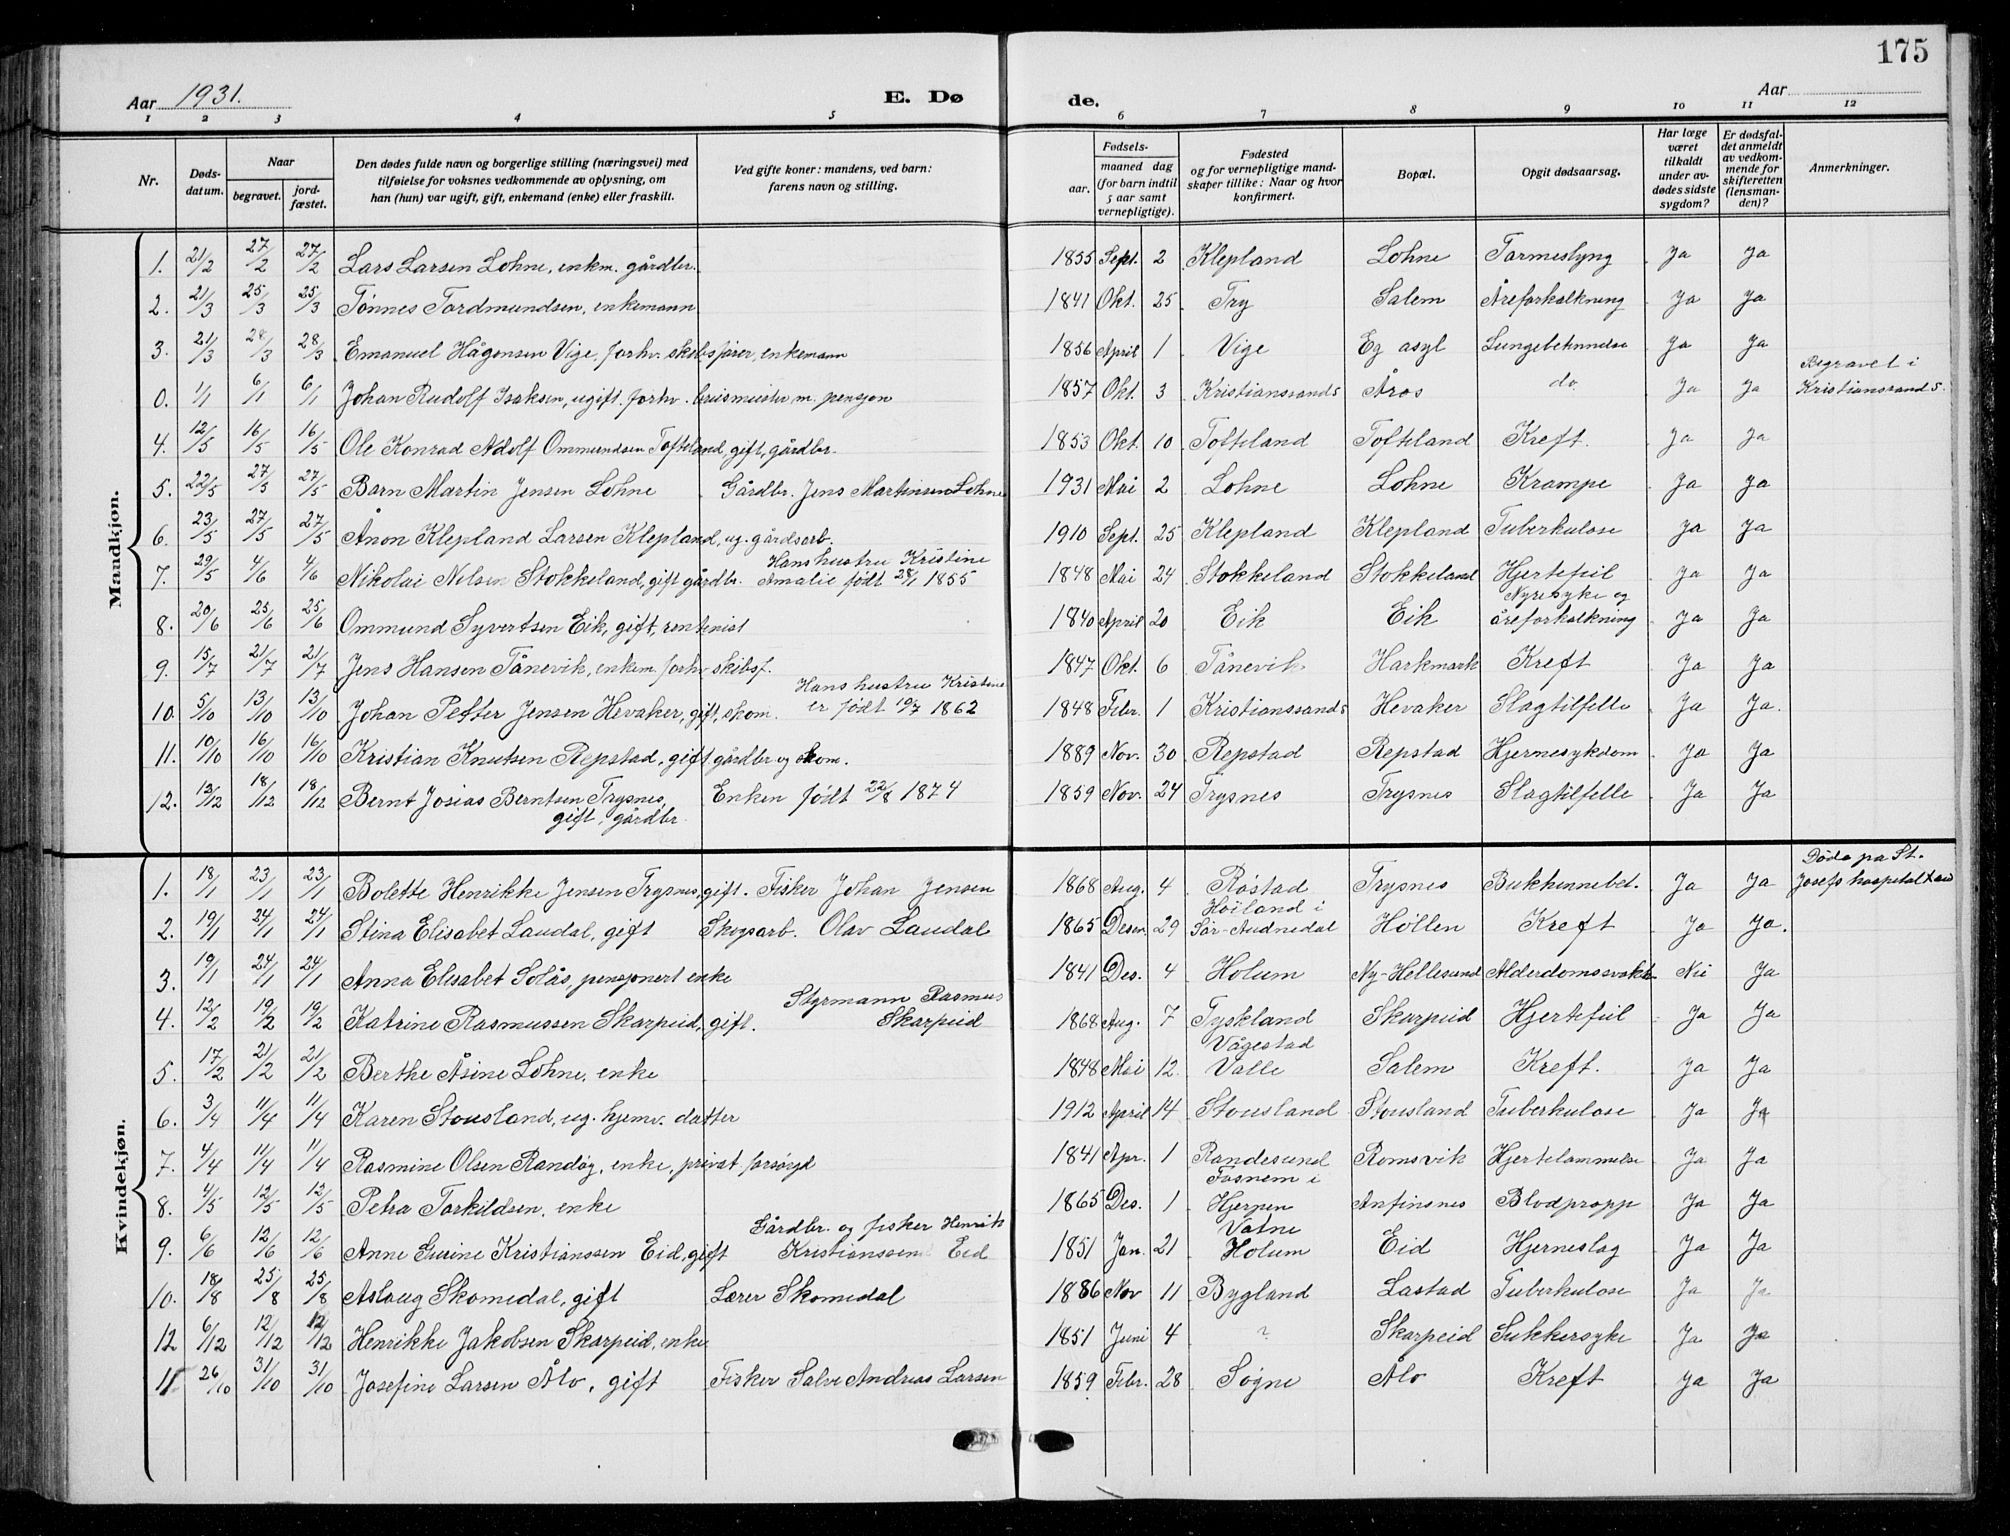 175
Aar 1931. E. Dø de. Aar
1 2 3 4 5 6 7 8 9 10 11 12
Nr. Døds-datum. Naar begravet. jord-fæstet. Den dødes fulde navn og borgerlige stilling (næringsvei) med tilføielse for voksnes vedkommende av oplysning, om han (hun) var ugift, gift, enkemand (enke) eller fraskilt. Ved gifte koner: mandens, ved barn: farens navn og stilling. Fødsels- aar. maaned dag (for barn indtil 5 aar samt vernepligtige). Fødested og for vernepligtige mand-skaper tillike: Naar og hvor konfirmert. Bopæl. Opgit dødsaarsag. Har læge været tilkaldt under av-dødes sidste sygdom? Er dødsfal-det anmeldt av vedkom-mende for skifteretten (lensman-den)? Anmerkninger.
Mandkjøn.
1. 21/2 27/2 27/2 Lars Larsen Lohne, enkm. gårdbr. 1855 Sept. 2 Klepland Lohne Tarmeslyng Ja Ja
2. 21/3 25/3 25/3 Tønnes Tordmundsen, enkemann 1841 Okt. 25 Try Salem Åreforkalkning Ja Ja
3. 21/3 28/3 28/3 Emanuel Hågensen Vige, forhv. skibsfører, enkemann 1856 April 1 Vige Eg asyl Lungebetennelse Ja Ja
0. 1/1 6/1 6/1 Johan Rudolf Isaksen, ugift. forhv. bruismester m. pensjon 1857 Okt. 3 Kristianssands Åros do Ja Ja Begravet i Kristianssand S.
4. 12/5 16/5 16/5 Ole Konrad Adolf Ommundsen Tofteland, gift, gårdbr. 1853 Okt. 10 Tofteland Tofteland Kreft. Ja Ja
5. 22/5 27/5 27/5 Barn Martin Jensen Lohne Gårdbr. Jens Martinsen Lohne 1931 Mai 2 Lohne Lohne Krampe Ja Ja
6. 23/5 27/5 27/5 Ånon Klepland Larsen Klepland, ug. gårdsarb. 1910 Sept. 25 Klepland Klepland Tuberkulose Ja Ja
7. 29/5 4/6 4/6 Nikolai Nelsen Stokkeland, gift gårdbr. Hans hustru Kristine Amalie født 28/1 1855 1848 Mai 24 Stokkeland Stokkeland Hjertefeil Ja Ja
8. 20/6 25/6 25/6 Ommund Syvertsen Eik, gift, rentenist 1840 April 20 Eik Eik Nyresyke og åreforkalkning Ja Ja
9. 15/7 21/7 21/7 Jens Hansen Tånevik, enkem. forhv skibsf. 1847 Okt. 6 Tånevik Harkmark Kreft Ja Ja
10. 5/10 13/10 13/10 Johan Petter Jensen Hevaker, gift, skom. Hans hustru Kristine er født 19/7 1862 1848 Febr. 1 Kristianssands Hevaker Slagtilfelle Ja Ja.
11. 10/10 16/10 16/10 Kristian Knutsen Repstad, gift gårdbr og skom. 1889 Nov. 30 Repstad Repstad Hjernesykdom Ja Ja
12. 13/12 18/12 18/12 Bernt Josias Berntsen Trysnes, gift, gårdbr. Enken født 22/8 1874 1859 Nov. 24 Trysnes Trysnes Slagtilfelle Ja Ja
Kvindekjøn.
1. 18/1 23/1 23/1 Bolette Henrikke Jensen Trysnes, gift. Fisker Johan Jensen 1868 Aug. 4 Røstad Trysnes Bukhinnebet. Ja Ja Døde på St. Josefs hospital
2. 19/1 24/1 24/1 Stina Elisabet Laudal, gift Skogsarb. Olav Laudal 1865 Desem. 29 Høiland i Sør-Audnedal Høllen Kreft Ja Ja.
3. 19/1 24/1 24/1 Anna Elisabet Solås, pensjonert enke 1841 Des. 4 Holum Ny-Hellesund Alderdomssvakh. Nei Ja
4. 12/2 19/2 19/2 Katrine Rasmussen Skarpeid, gift. Styrmann Rasmus Skarpeid 1868 Aug. 7 Tyskland Skarpeid Hjertefeil Ja Ja
5. 17/2 21/2 21/2 Berthe Åsine Lohne, enke 1848 Mai 12. Vågestad Valle Salem Kreft. Ja Ja
6. 3/4 11/4 11/4 Karen Stousland, ug. hjemv. datter 1912 April 14 Stousland Stousland Tuberkulose Ja Ja
7. 4/4 11/4 11/4 Rasmine Olsen Randøy, enke, privat forsørgd 1841 Apr. 1 Randesund Romsvik Hjertelammelse Ja Ja
8. 4/5 12/5 12/5 Petra Torkildsen, enke 1865 Des. 1 Fosnem i Hjerpen Anfinsnes Blodpropp Ja Ja
9. 6/6 12/6 12/6 Anne Gurine Kristianssen Eid, gift Gårdbr. og fisker Henrik Kristianssen Eid 1851 Jan. 21 Vatne Holum Eid Hjerneslag Ja Ja
10. 18/8 25/8 25/8 Aslaug Skomedal, gift Lærer Skomedal 1886 Nov 11 Bygland Lastad Tuberkulose Ja Ja
12 6/12 12/12 12/12 Henrikke Jakobsen Skarpeid, enke 1851 Juni 4 ? Skarpeid Sukkersyke Ja Ja
11 26/10 31/10 31/10 Josefine Larsen Ålo, gift Fisker Salve Andreas Larsen 1859 Febr. 28 Søgne Ålo Kreft Ja Ja